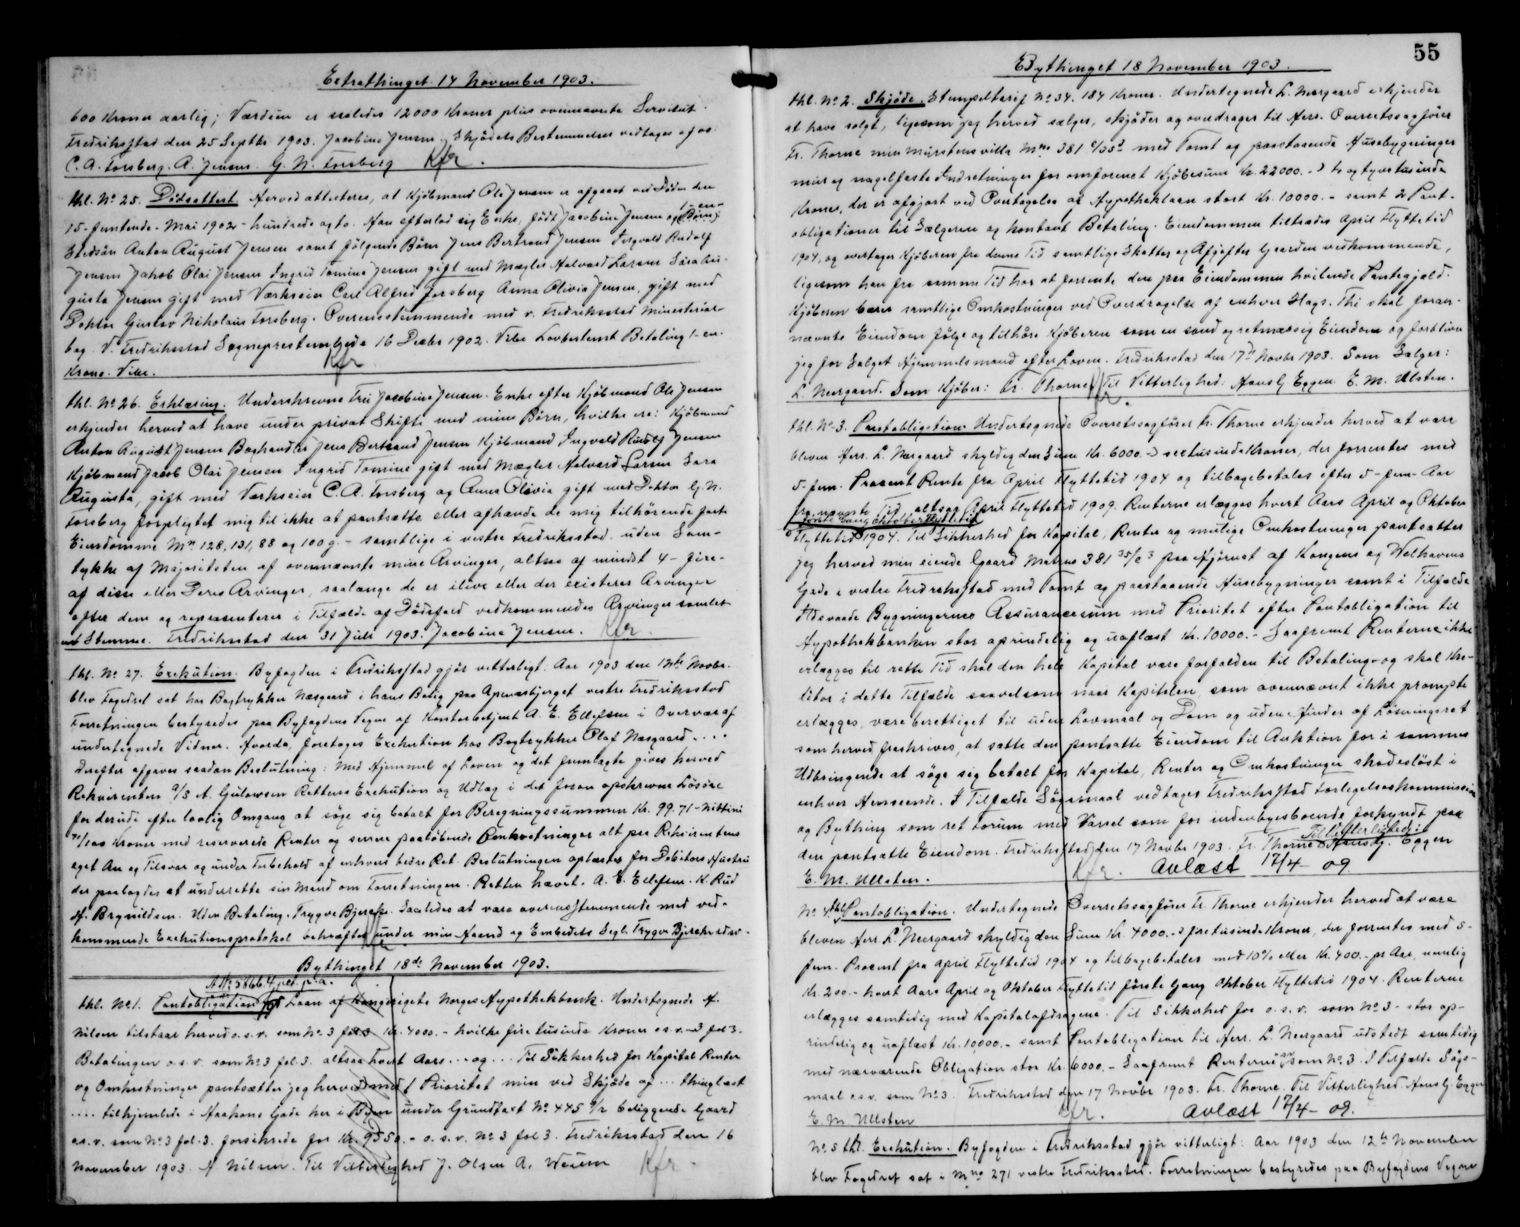 Extrathinget 14 November 1903.
600 Kroner aarlig; Værdien er saaledes 12000 Kroner plus ovennævnte Servitut.
Fredriksstad den 25 Septbr 1903. Jacobine Jensen. Skjødets Bestemmelser vedtages af os:
C. A. Forsberg. A. Jensen. G. N. Forsberg Kfr.
thl. No 25. Dødsattest. Herved attesteres, at Kjøbmand Ole Jensen er afgaaet ved Døden den
15-femtende-Mai 1902 - hundrede og to. Han efterlod sig Enke, født Jacobine Jensen og
Stedsøn Anton August Jensen samt følgende Børn Jens Bertrand Jensen Ingvald Rudolf
Jensen Jakob Olai Jensen Ingrid Tomine Jensen gift med Mægler Halvard Larsen Sara Au-
gusta Jensen gift med Værkseier Carl Alfred Forsberg Anna Olivia Jensen, gift med
Doktor Gustav Nikolaus Forsberg. Overensstemmende med v. Fredriksstad Ministerial-
bog. V. Fredriksstad Sogneprestembede 16 Decbr 1902. Vibe Lovbestemt Betaling 1-en-
Krone. Vibe. Kfr
thl. No 26. Erklæring. Underskrevne Fru Jacobine Jensen. Enke efter Kjøbmand Ole Jensen
erkjender herved at have under privat Skifte med mine Børn, hvilke ere: Kjøbmand
Anton August Jensen Boghandler Jens Bertrand Jensen Kjøbmand Ingvald Rudolf Jensen
Kjøbmand Jacob Olai Jensen Ingrid Tomine gift med Mægler Halvard Larsen Sara
Augusta, gift med Værkseier C. A. Forsberg og Anna Olivia gift med Doktor G. N.
Forsberg forpligtet mig til ikke at pantsætte eller afhænde de mig tilhørende faste
Eiendomme Mno 128, 131, 88 og 100 g. - samtlige i vestre Fredriksstad. uden Sam-
tykke af Majoriteten af ovennævnte mine Arvinger, altsaa af mindst 4 - fire -
af disse eller Deres Arvinger, saalænge de er ilive eller der existerer Arvinger
efter dem og representeres i Tilfælde af Dødsfald vedkommendes Arvinger samlet
ved Stemme. Fredriksstad den 31 Juli 1903. Jacobine Jensen. Kfr.
thl. No 27. Exekution. Byfogden i Fredriksstad gjør vitterligt: Aar 1903 den 12te Novbr.
blev Fogedret sat hos Bogtrykker Næsgaard i hans Bolig paa Apenesbjerget vestre Fredriksstad
Forretningen bestyredes paa Byfogdens Vegne af Kontorbetjent A. E. Ellefsen i Overvær af
undertegnede Vidner. Hvorda, foretoges Exekution hos Bogtrykker Olaf Næsgaard ....
Derefter afgaves saadan Beslutning: Med Hjemmel af Loven og det fremlagte gives herved
Rekvirenten A/S A. Gulowsen Rettens Exekution og Udlæg i det foran opskrevne Løsøre
for derudi efter lovlig Omgang at søge sig betalt for Beregningssummen Kr. 99.71 - Nittini
71/100 Kroner med reserverede Renter og senere paaløbende Omkostninger alt paa Rekvirentens
eget An og Tilsvar og under Forbehold af enhvers bedre Ret. Beslutningen oplæstes for Debitors Hustru
der paalagdes at underrette sin Mand om Forretningen. Retten hævet. A. E. Ellefsen. K. Rud
H. Brynildsen. Uden Betaling. Trygve Bjerke. Saaledes at være overensstemmende med ved-
kommende Exekutionsprotokol bekræftes under min Haand og Embedets Segl. Trygve Bjerke
Bythinget 18de November 1903.
thl. No 1. Pantobligation for Laan af Kongeriget Norges Hypothekbank. Undertegnede A.
Nilsen tilstaar herved o.s.v. som No 3 fol 3 Kr. 4000. - hvilke fire tusinde Kroner o s v. 3 fol 3.
Betalingen o.s.v. som No 3 fol. 3. altsaa hvert Aars ... og ... Til Sikkerhed for Kapital Renter
og Omkostninger pantsætter jeg herved med 1 Prioritet min ved Skjøde af ... thinglæst
.... tilhjemlede i Haakons Gade her i Byen under Grundtaxt No 445 beliggende Gaard
o.s.v. som No 3 fol. 3. forsikrede for Kr. 9550. - o.s.v. No 3 fol 3. Fredriksstad den 16
November 1903. A Nilsen. Til Vitterlighed J. Olsen A. Kfr.
Bythinget 18 November 1903.
55
thl. No 2. Skjøde. Stempeltarif No 34. 184 Kroner. Undertegnede L. Nørgaard erkjender
at have solgt, ligesom jeg herved sælger, skjøder og overdrager til Herr. Overretssagfører
Fr. Thorne min Murstensvilla Mno 381 med Tomt og paastaaende Husebygninger
mur og nagelfaste Indretninger for omforenet Kjøbesum Kr. 22000. - to og tyvetusinde
Kroner, der er afgjort ved Overtagelse af Hypotheklaan stort Kr. 10000. - samt 2 Pant-
obligationer til Sælgeren og kontant Betaling. Eiendommen tiltrædes April Flyttetid
1904, og overtager Kjøberen fra denne Tid samtlige Skatter og Afgifter Gaarden vedkommende,
ligesom han fra samme Tid har at forrente den paa Eiendommen hvilende Pantegjæld.
Kjøberen bærer samtlige Omkostninger ved Overdragelse af enhver Slags. Thi skal foran-
nævnte Eiendom følge og tilhøre Kjøberen som en sand og retmæssig Eiendom og forbliver
jeg for Salget Hjemmelsmand efter Loven. Fredriksstad den 17de Novbr 1903. Som Sælger:
L. Nørgaard. Som Kjøber: Fr. Thorne. Til Vitterlighed: Hansly Eggen. E. M. Ulsten.
Kfr.
thl. No 3. Pantobligation. Undertegnede Overretssagfører Fr. Thorne erkjender herved at være
bleven Herr. L. Nørgaard skyldig den Sum Kr. 6000. - sextusinde Kroner, der forrentes med
5 - fem - Procent Rente fra April Flyttetid 1904 og tilbagebetales efter 5 - fem - Aar
fra nævnte Tid, altsaa April Flyttetid 1909. Renterne erlægges hvert Aars April og Oktober
første Gang Oktober Flyttetid
Flyttetid 1904. Til Sikkerhed for Kapital, Renter og mulige Omkostninger pantsætter
jeg herved min eiende Gaard Matrno 381 paa Hjørnet af Kongens og Welhavens
Gade i vestre Fredriksstad med Tomt og paastaaende Husebygninger samt i Tilfælde
Ildsvaade Bygningernes Assurancesum med Prioritet efter Pantobligation til
Hypothekbanken stor oprindelig og uaflæst Kr. 10000. - Saafremt Renterne ikke
erlægges til rette Tid skal den hele Kapital være forfalden til Betaling og skal Kre-
ditor i dette Tilfælde saavelsom naar Kapitalen, som ovennævnt ikke prompte
erlægges, være berettiget til uden Lovmaal og Dom og uden hinder af Løsningsret
som herved fraskrives, at sætte den pantsatte Eiendom til Auktion for i sammes
Udbringende at søge sig betalt for Kapital, Renter og Omkostninger skadesløst i
enhver Henseende. I Tilfælde Søgsmaal vedtages Fredriksstad Forligelseskommission
og Bything som ret Forum med Varsel som for indenbysboende forkyndt paa
den pantsatte Eiendom. Fredriksstad den 17 Novbr 1903. Fr. Thorne. Til Vitterlighed: Hansly. Eggen
E. M. Ullsten. Kfr. Avlæst 17/4 09
No 4 thl. Pantobligation. Undertegnede Overretssagfører Fr. Thorne erkjender herved at være
bleven Herr. L. Nørgaard skyldig den Sum Kr. 4000. - firetusinde Kroner, der forrentes med 5 -
fem - Procent fra April Flyttetid 1904 og tilbagebetales med 10% eller Kr. 400. - pr Aar, nemlig
Kr. 200. - hvert Aars April og Oktober Flyttetid første Gang Oktober Flyttetid 1904. Renterne
erlægges samtidig med Kapitalafdragene. Til Sikkerhed for o.s.v. som No 3 - stor op-
rindelig og uaflæst Kr. 10,000. - samt Pantobligation til Herr. L. Nørgaard udstedt samtidig
med nærværende Obligation stor Kr. 6000. - Saafremt Renterne som No 3. I Tilfælde Søgs-
maal o.s.v. som No 3. Fredriksstad den 17 Novbr 1903. Fr. Thorne. Til Vitterlighed Hansly Eggen
E. M. Ullsten Kfr. Avlæst 17/4 - 09.
No 5 thl. Exekution. Byfogden i Fredriksstad gjør vitterligt: Aar 1903 den 12te November
blev Fogedret sat i Mno 271 vestre Fredriksstad. Forretningen bestyredes paa Byfogdens Vegne